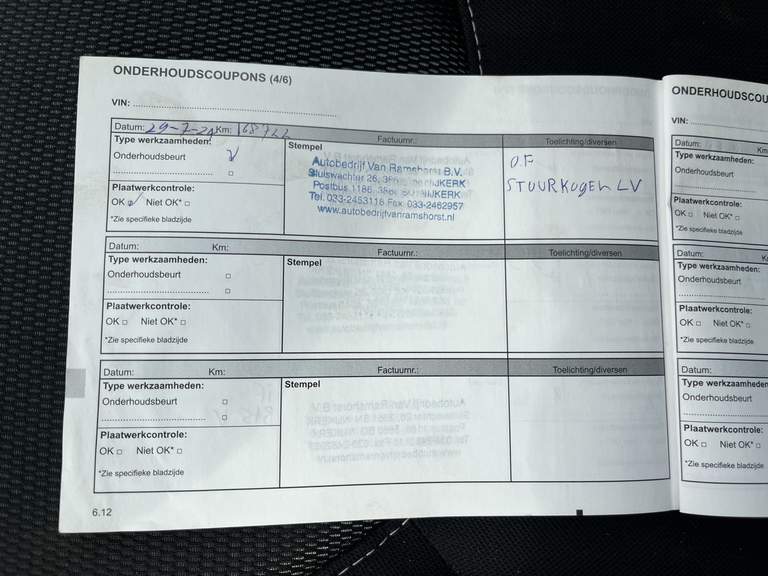 ONDERHOUDSCOUPONS (4/6)
VIN:
Datum: 29-7-24 Km: 168722
Factuurnr.:
Toelichting/diversen
Type werkzaamheden:
Onderhoudsbeurt
Plaatwerkcontrole:
OK Niet OK*
*Zie specifieke bladzijde
Stempel
Autobedrijf Van Ramshorst B.V.
Sluiswachter 26, NIJKERK
Postbus 1186, NIJKERK
Tel. 033-2453118 Fax 033-2462957
www.autobedrijfvanramshorst.nl
O.F
STUURKOGEL LV
Datum: Km:
Factuurnr.:
Toelichting/diversen
Type werkzaamheden:
Onderhoudsbeurt
Plaatwerkcontrole:
OK Niet OK*
*Zie specifieke bladzijde
Stempel
Datum: Km:
Factuurnr.:
Toelichting/diversen
Type werkzaamheden:
Onderhoudsbeurt
Plaatwerkcontrole:
OK Niet OK*
*Zie specifieke bladzijde
Stempel
6.12
ONDERHOUDSCOU
VIN:
Datum:
Type werkzaamheden:
Onderhoudsbeurt
Plaatwerkcontrole:
OK Niet OK*
*Zie specifieke bladzijde
Datum:
Type werkzaamheden:
Onderhoudsbeurt
Plaatwerkcontrole:
OK Niet OK*
*Zie specifieke bladzijde
Datum:
Type werkzaamheden
Onderhoudsbeurt
Plaatwerkcontrole:
OK Niet OK*
*Zie specifieke bladzijde